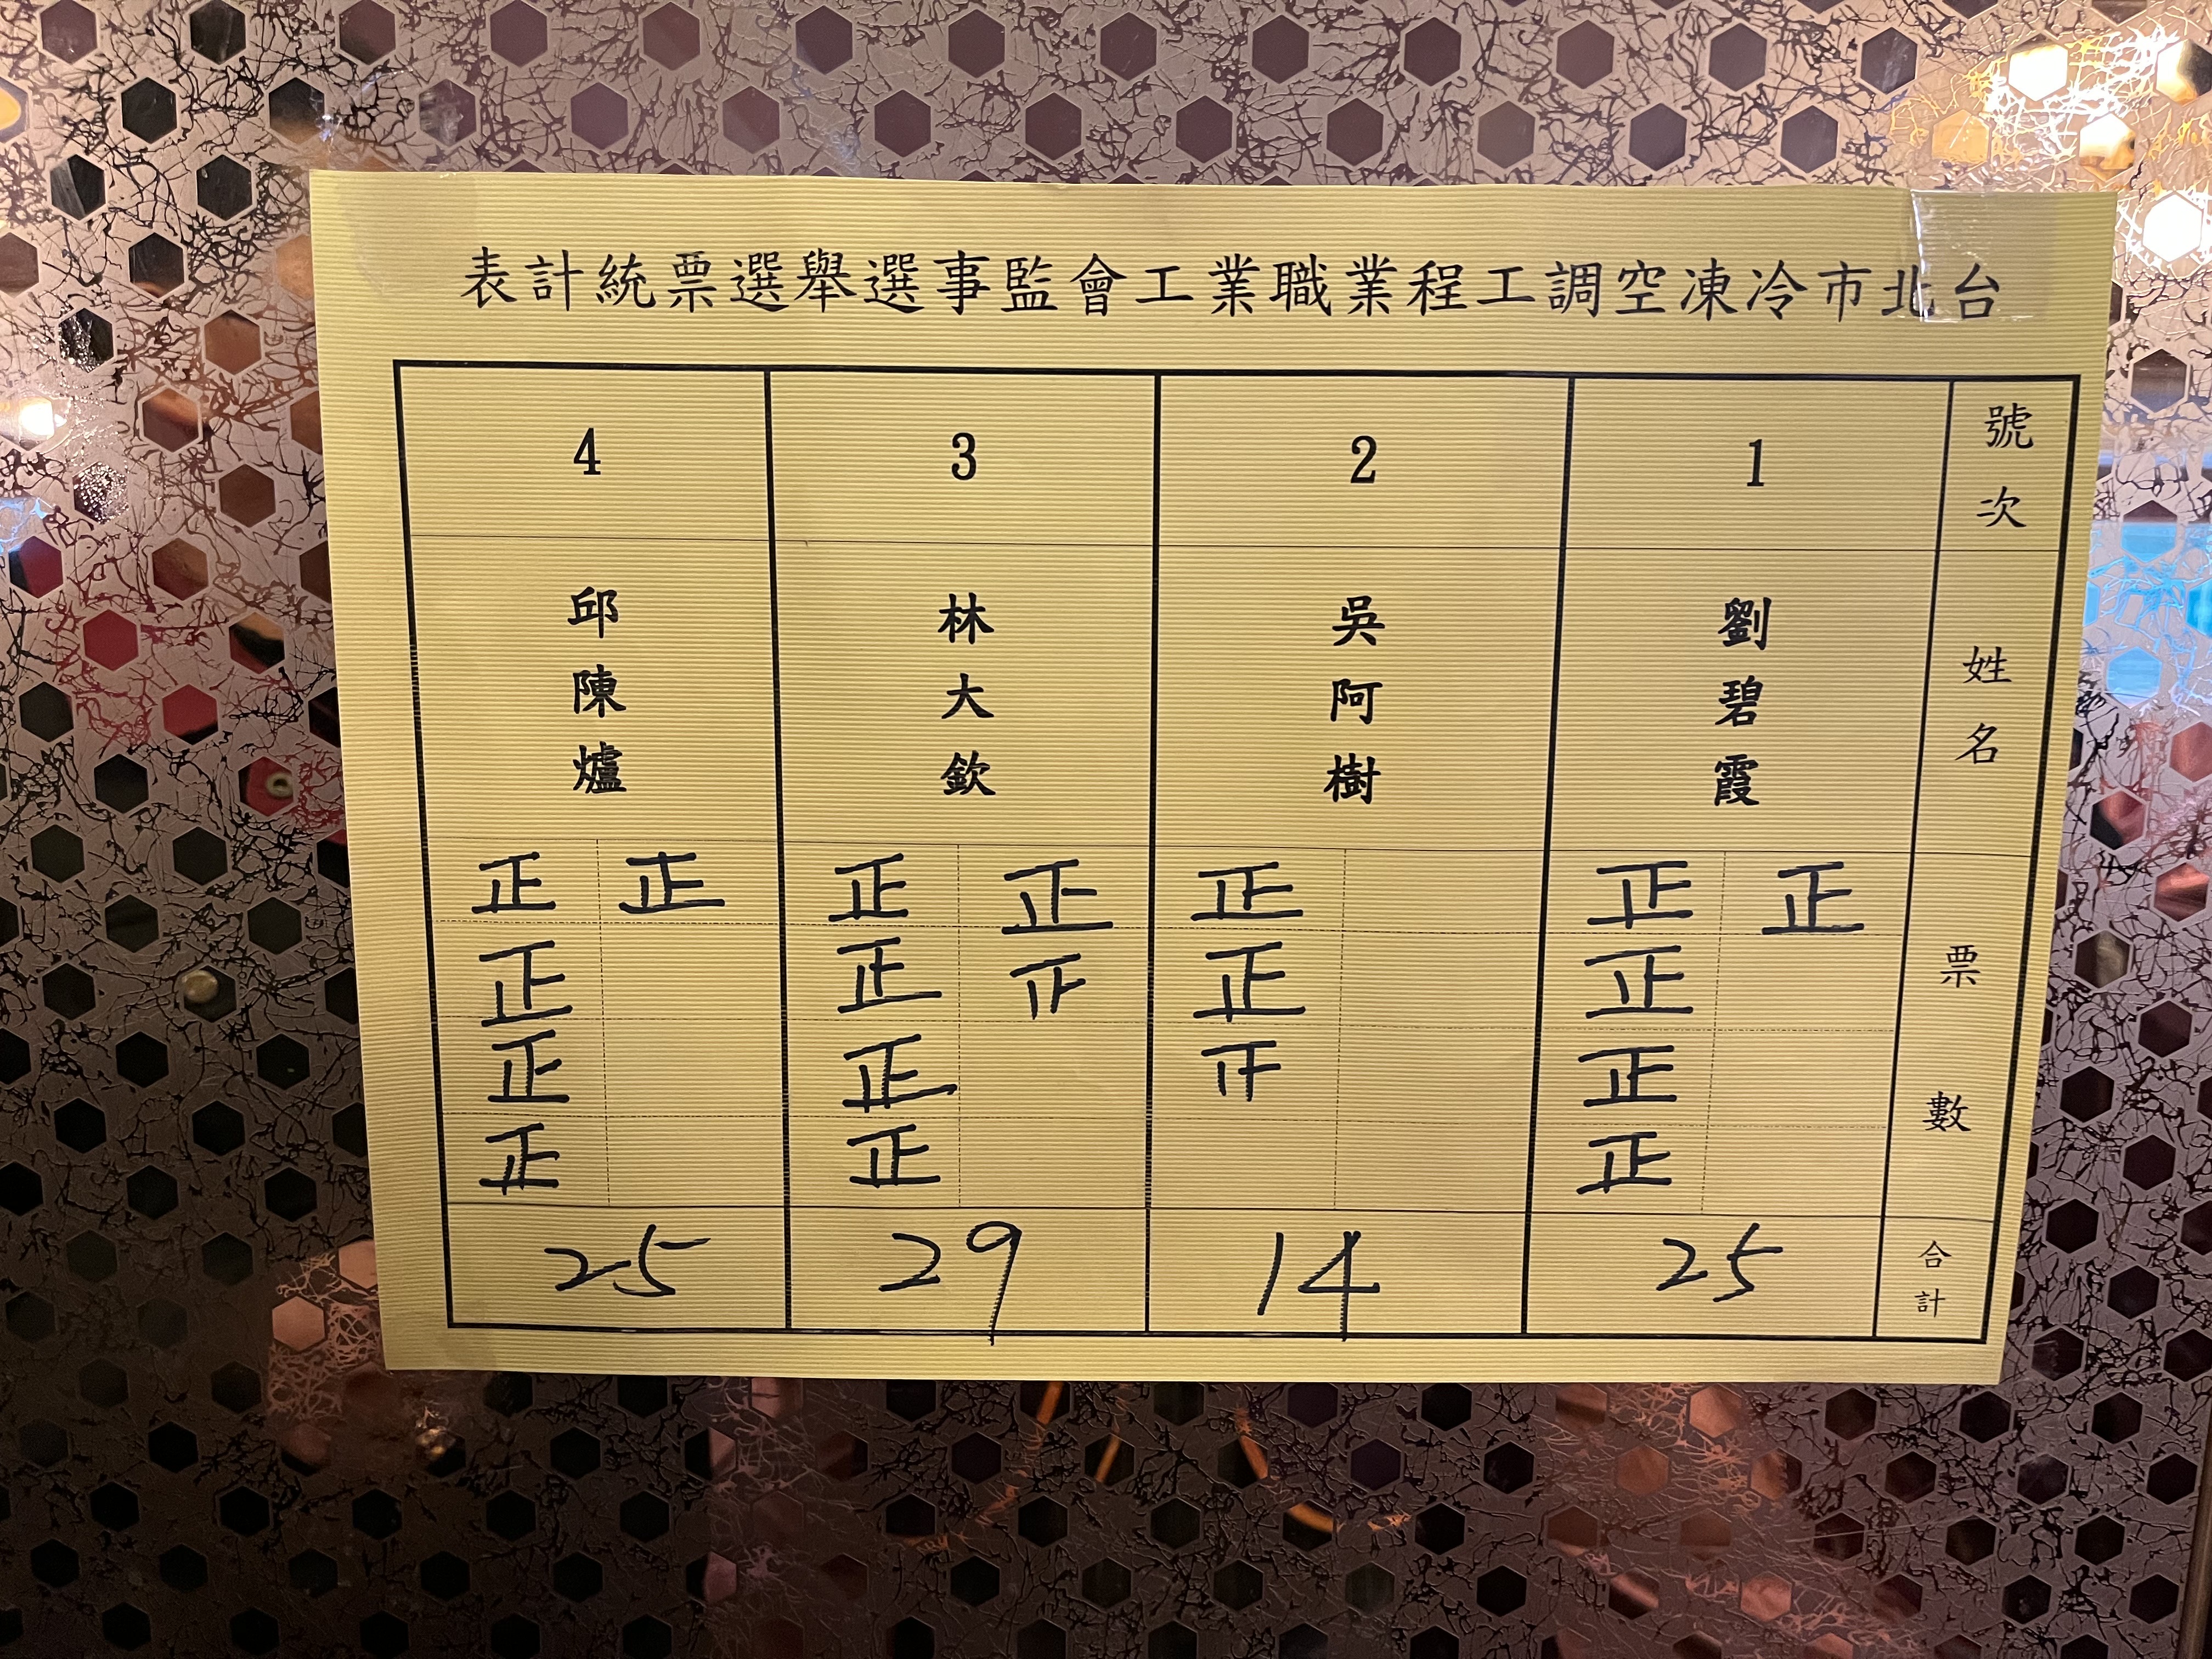 台北市冷凍空調工程業職業工會監事選舉選票統計表
號次
姓名
票數
合計
1
劉碧霞
正正
正
正
正
25
2
吳阿樹
正
正
14
3
林大欽
正正
正
正
正
29
4
邱陳爐
正正
正
正
正
25